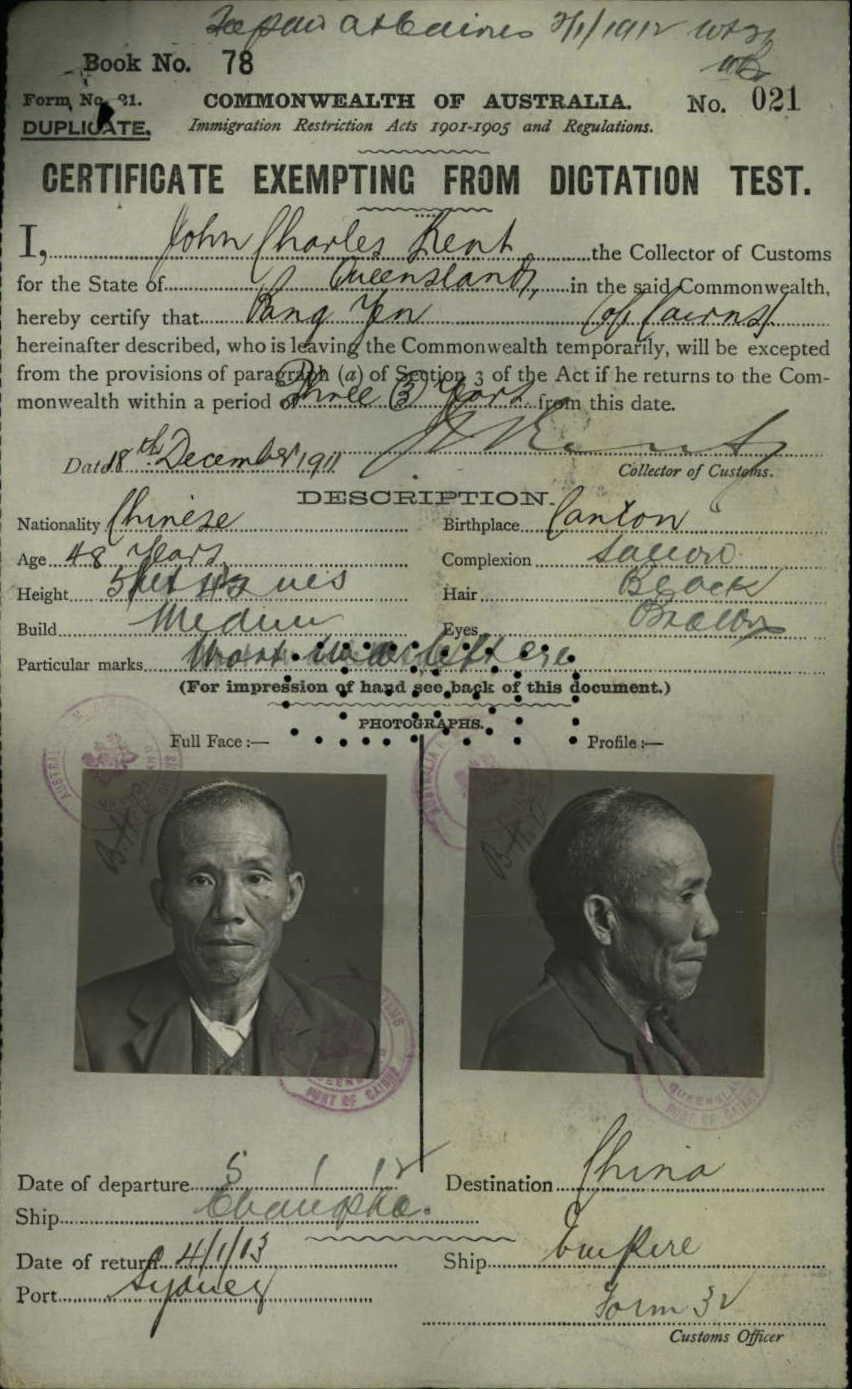 at Cairns 3/1/1912
Book No. 78
Form No. 21.
COMMONWEALTH OF AUSTRALIA.
No. 021
DUPLICATE.
Immigration Restriction Acts 1901-1905 and Regulations.
CERTIFICATE EXEMPTING FROM DICTATION TEST.
I, John Charles Kent the Collector of Customs
for the State of Queensland, in the said Commonwealth,
hereby certify that Yen (of Cairns)
hereinafter described, who is leaving the Commonwealth temporarily, will be excepted
from the provisions of paragraph (a) of Section 3 of the Act if he returns to the Com-
monwealth within a period of Three (3) Years from this date.
Date 18th December 1911
Collector of Customs.
DESCRIPTION.
Nationality Chinese
Birthplace Canton
Age 48 Years
Complexion Sallow
Height 5 feet ins
Hair Black
Build Medium
Eyes Brown
Particular marks left eye
(For impression of hand see back of this document.)
PHOTOGRAPHS.
Full Face :—
Profile :—
PORT OF CAIRNS
QUEENSLAND
PORT OF CAIRNS
Date of departure 5 1 12
Destination China
Ship Changsha.
Date of return 4/1/13
Ship Empire
Port Sydney
Form 32
Customs Officer